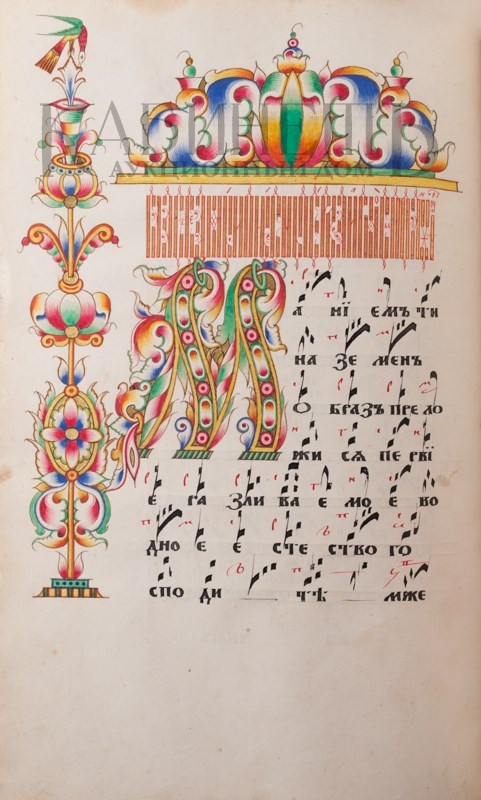 КАБИНЕТЪ
АУКЦИОННЫЙ ДОМ
М
А НЇ ЕМЪ ЧИ
НА ЗЕ МЕНЪ
О БРАЗЪ ПРЕ ЛО
ЖИ СЯ ПЕР ВЇ
Е РА ЗЛИ ВА Е МО Е ВО
ДНО Е Е СТЕ СТВО ГО
СПО ДИ ЧѢ МЖЕ